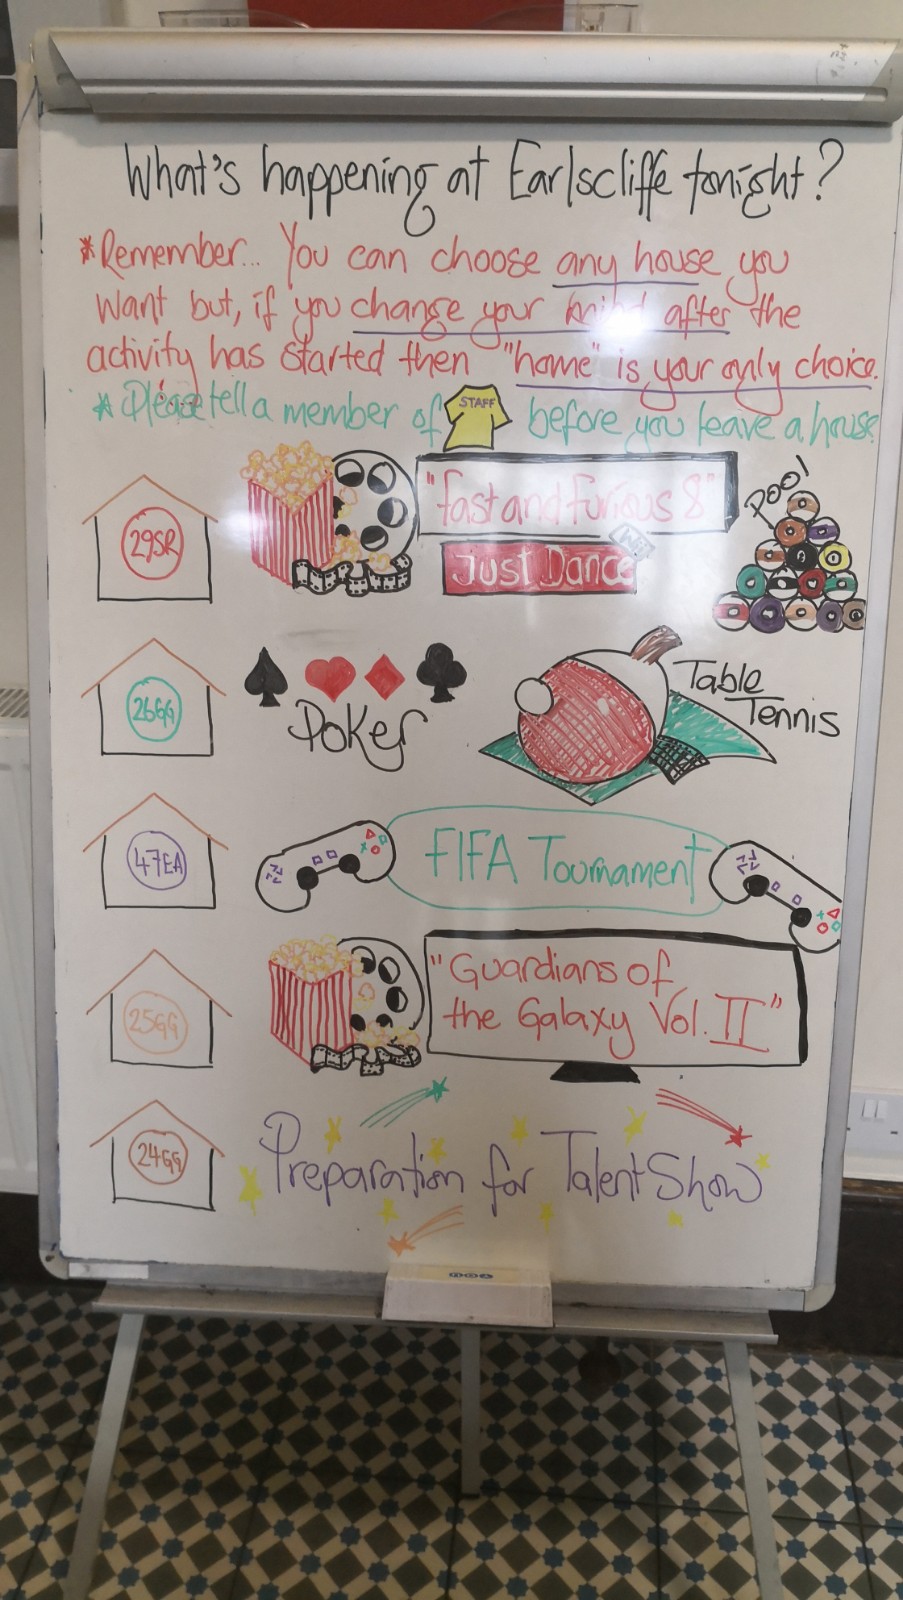 What's happening at Earlscliffe tonight?
*Remember... You can choose any house you
want but, if you change your mind after the
activity has started then "home" is your only choice.
*Please tell a member of STAFF before you leave a house
29SR
"fast and furious 8"
Wii
Just Dance
Pool
26GG
Poker
Table
Tennis
47EA
FIFA Tournament
25GG
"Guardians of
the Galaxy Vol. II"
24GG
Preparation for Talent Show